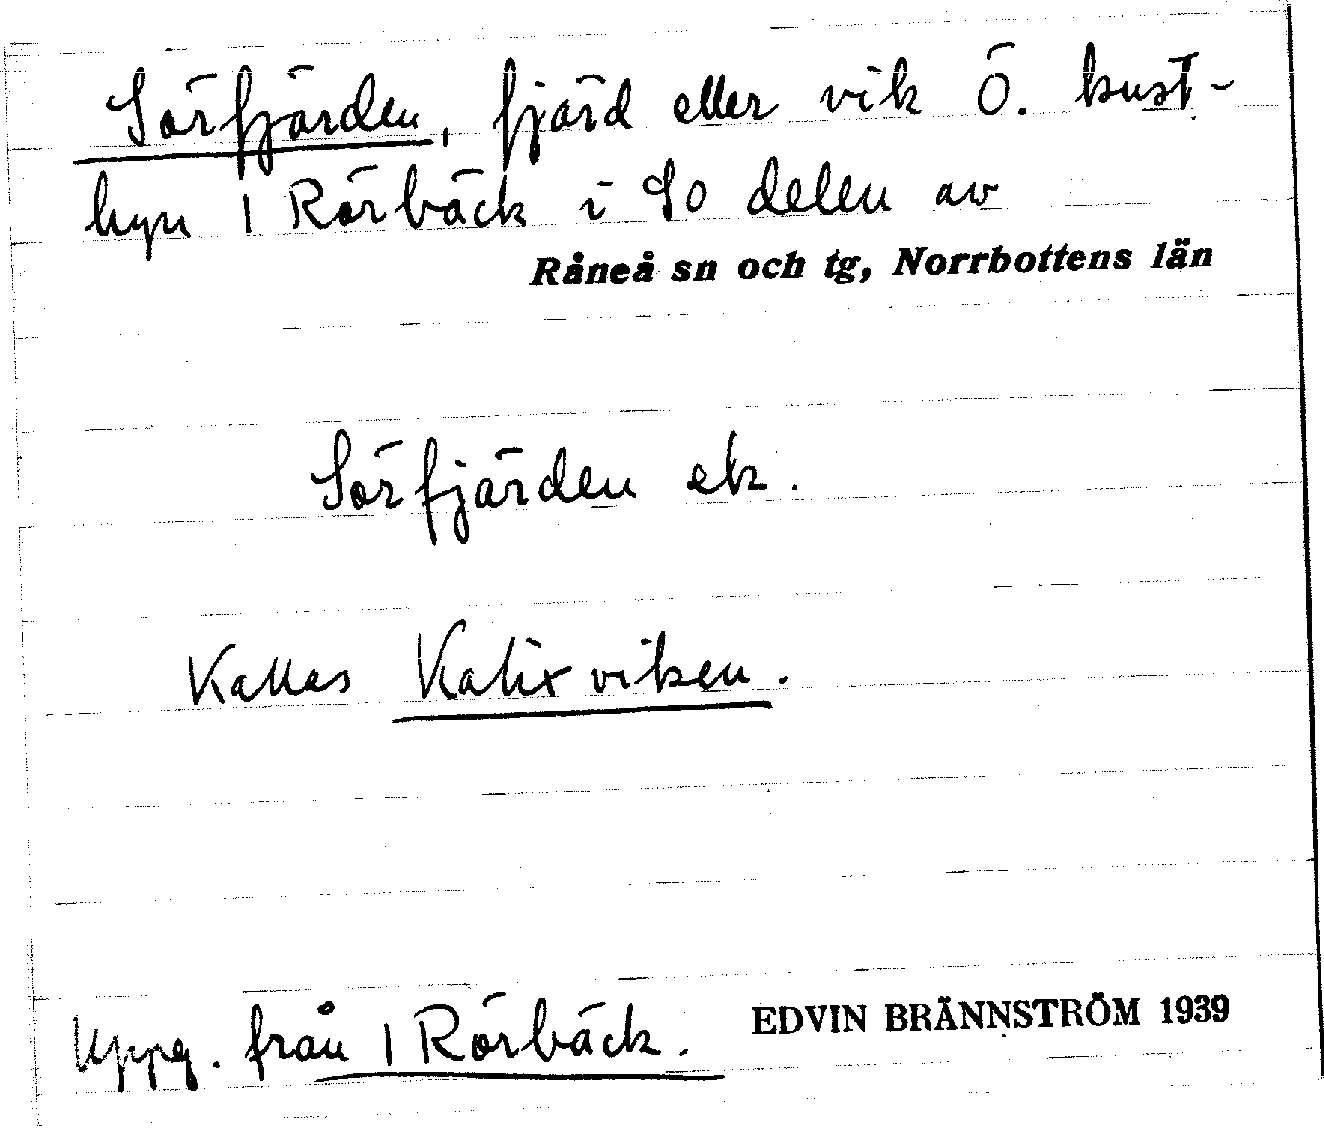 Sörfjärden, fjärd eller vik Ö. kust-
byn 1 Rörbäck i So delen av
Råneå sn och tg, Norrbottens län
Sörfjärden ek.
Kallas Kalixviken.
Uppg. från 1 Rörbäck.
EDVIN BRÄNNSTRÖM 1939